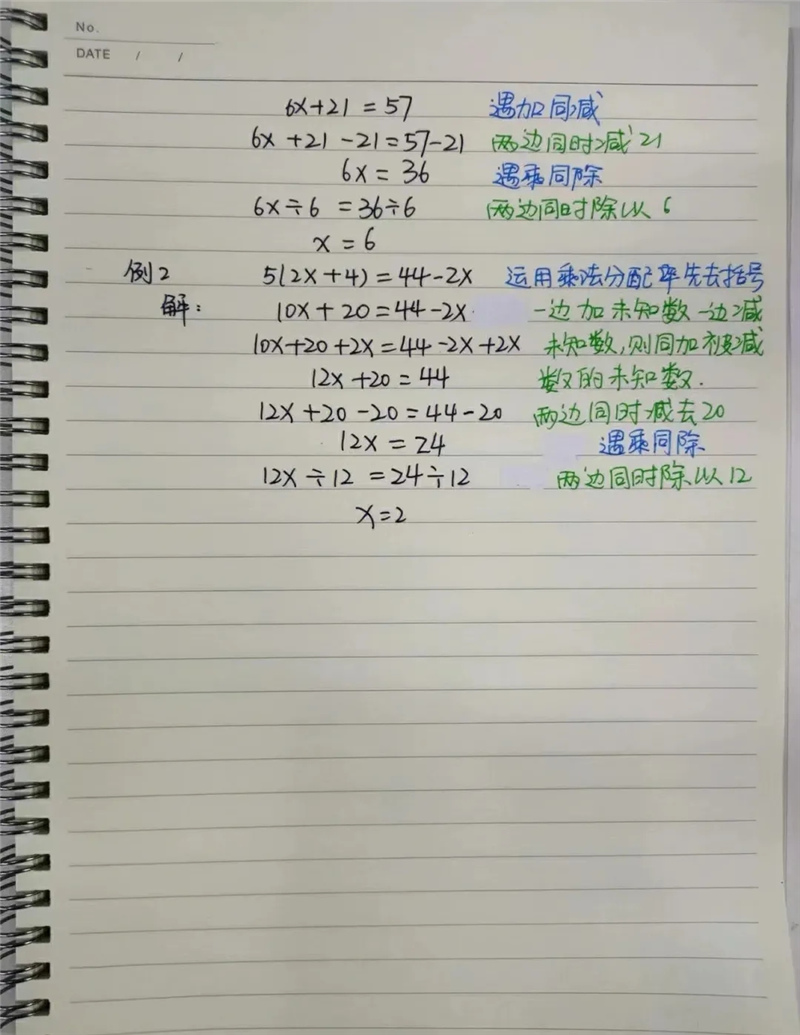 No.
DATE / /
6x+21=57 遇加同减
6x+21-21=57-21 两边同时减21
6x=36 遇乘同除
6x÷6=36÷6 两边同时除以6
x=6
例2 5(2x+4)=44-2x 运用乘法分配率先去括号
解: 10x+20=44-2x 一边加未知数一边减
10x+20+2x=44-2x+2x 未知数,则同加被减
12x+20=44 数的未知数.
12x+20-20=44-20 两边同时减去20
12x=24 遇乘同除
12x÷12=24÷12 两边同时除以12
x=2